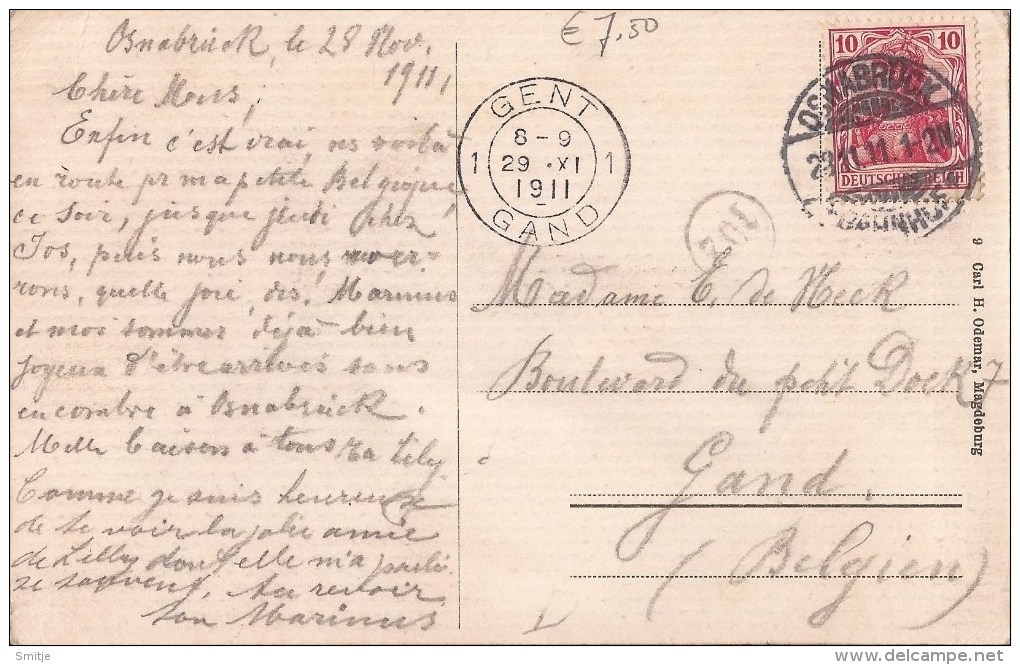 € 7,50
Osnabrück, le 28 Nov.
1911,
Chère Mous,
Enfin c'est vrai, ns voilà
en route pr ma petite Belgique
ce soir, jusque jeudi chez
Jos, puis nous nous
rons, quelle joie, dis! Marinus
et moi sommes déjà bien
joyeux d'être arrivés sans
encombre à Osnabrück.
Mille baisers à tous ta Lily
Comme je suis heureux
de te voir la jolie amie
de Lilly dont elle m'a parlé
ze souvent. Au revoir
ton Marinus
10 10
DEUTSCHES REICH
OSNABRÜCK
28.11.11. 1-2N
BAHNHOF
GENT
8-9
1 29 · XI 1
1911
GAND
Madame E. de Neck
Boulevard du petit Dock 7
Gand.
(Belgien)
9 Carl H. Odemar, Magdeburg
Smitje
www.delcampe.net